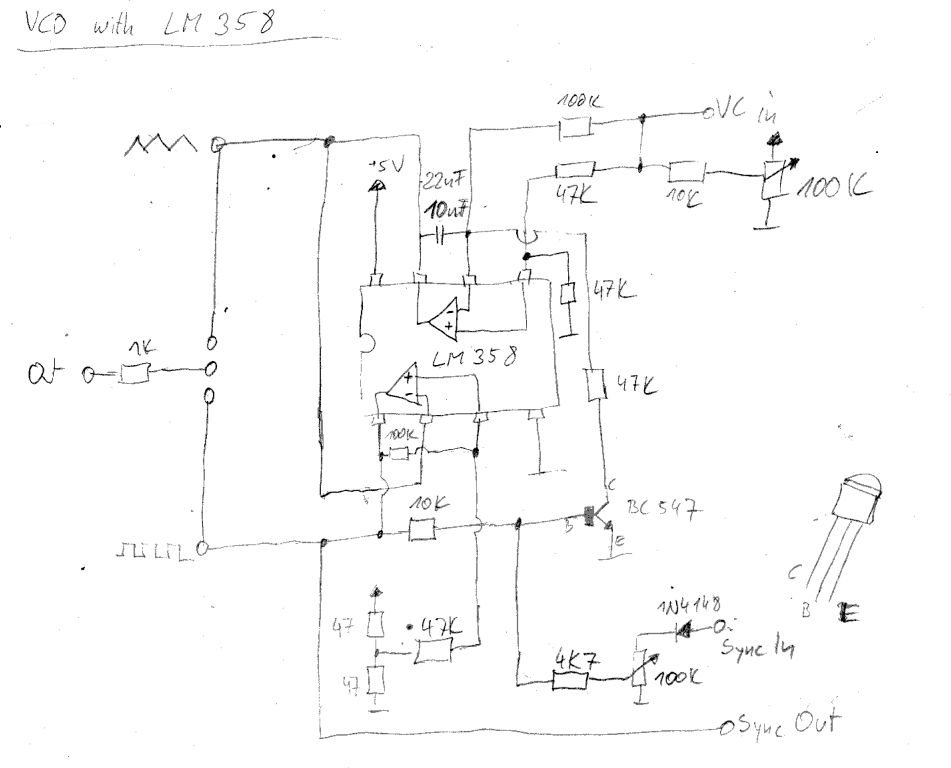 VCO with LM 358
100K
VC in
+5V
22nF
10nF
47K
10K
100K
47K
LM 358
+
-
-
+
1K
Out
47K
100K
10K
C
BC 547
B
E
C
B
E
1N4148
47
47K
Sync In
47
4K7
100K
Sync Out